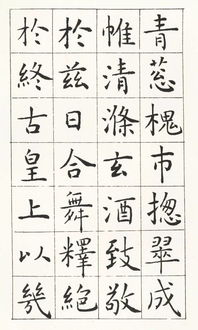 青蔥槐市揔翠成
帷清滌玄酒致敬
於茲日合舞釋絕
於終古皇上以幾